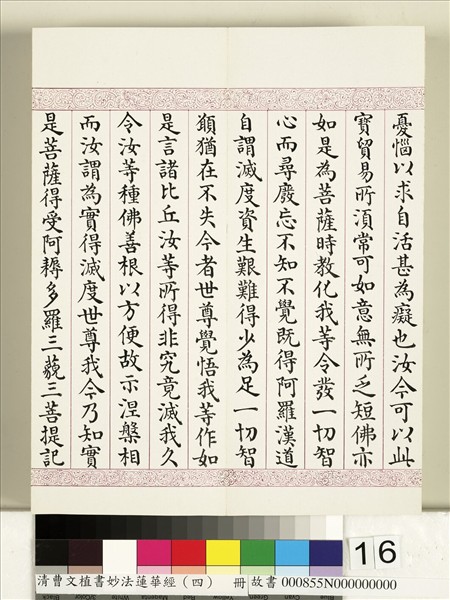 憂惱以求自活甚為癡也汝今可以此
寶貿易所須常可如意無所乏短佛亦
如是為菩薩時教化我等令發一切智
心而尋廢忘不知不覺既得阿羅漢道
自謂滅度資生艱難得少為足一切智
願猶在不失今者世尊覺悟我等作如
是言諸比丘汝等所得非究竟滅我久
令汝等種佛善根以方便故示涅槃相
而汝謂為實得滅度世尊我今乃知實
是菩薩得受阿耨多羅三藐三菩提記
16
清曹文植書妙法蓮華經（四） 冊 故書 000855N000000000